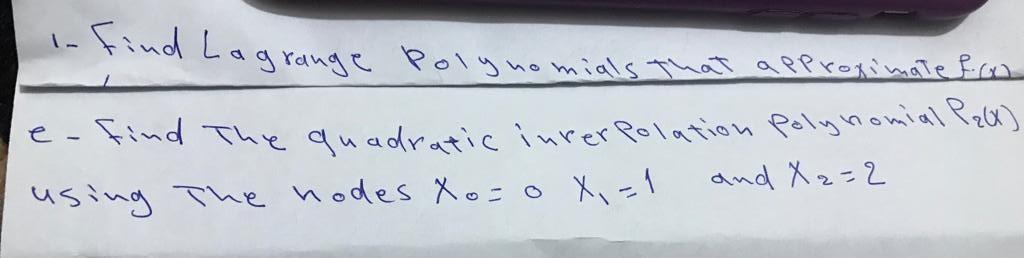 1- Find Lagrange Polynomials that approximate f(x)
e- Find The quadratic inrerPolation Polynomial P2(x)
using The nodes X0=0 X1=1 and X2=2